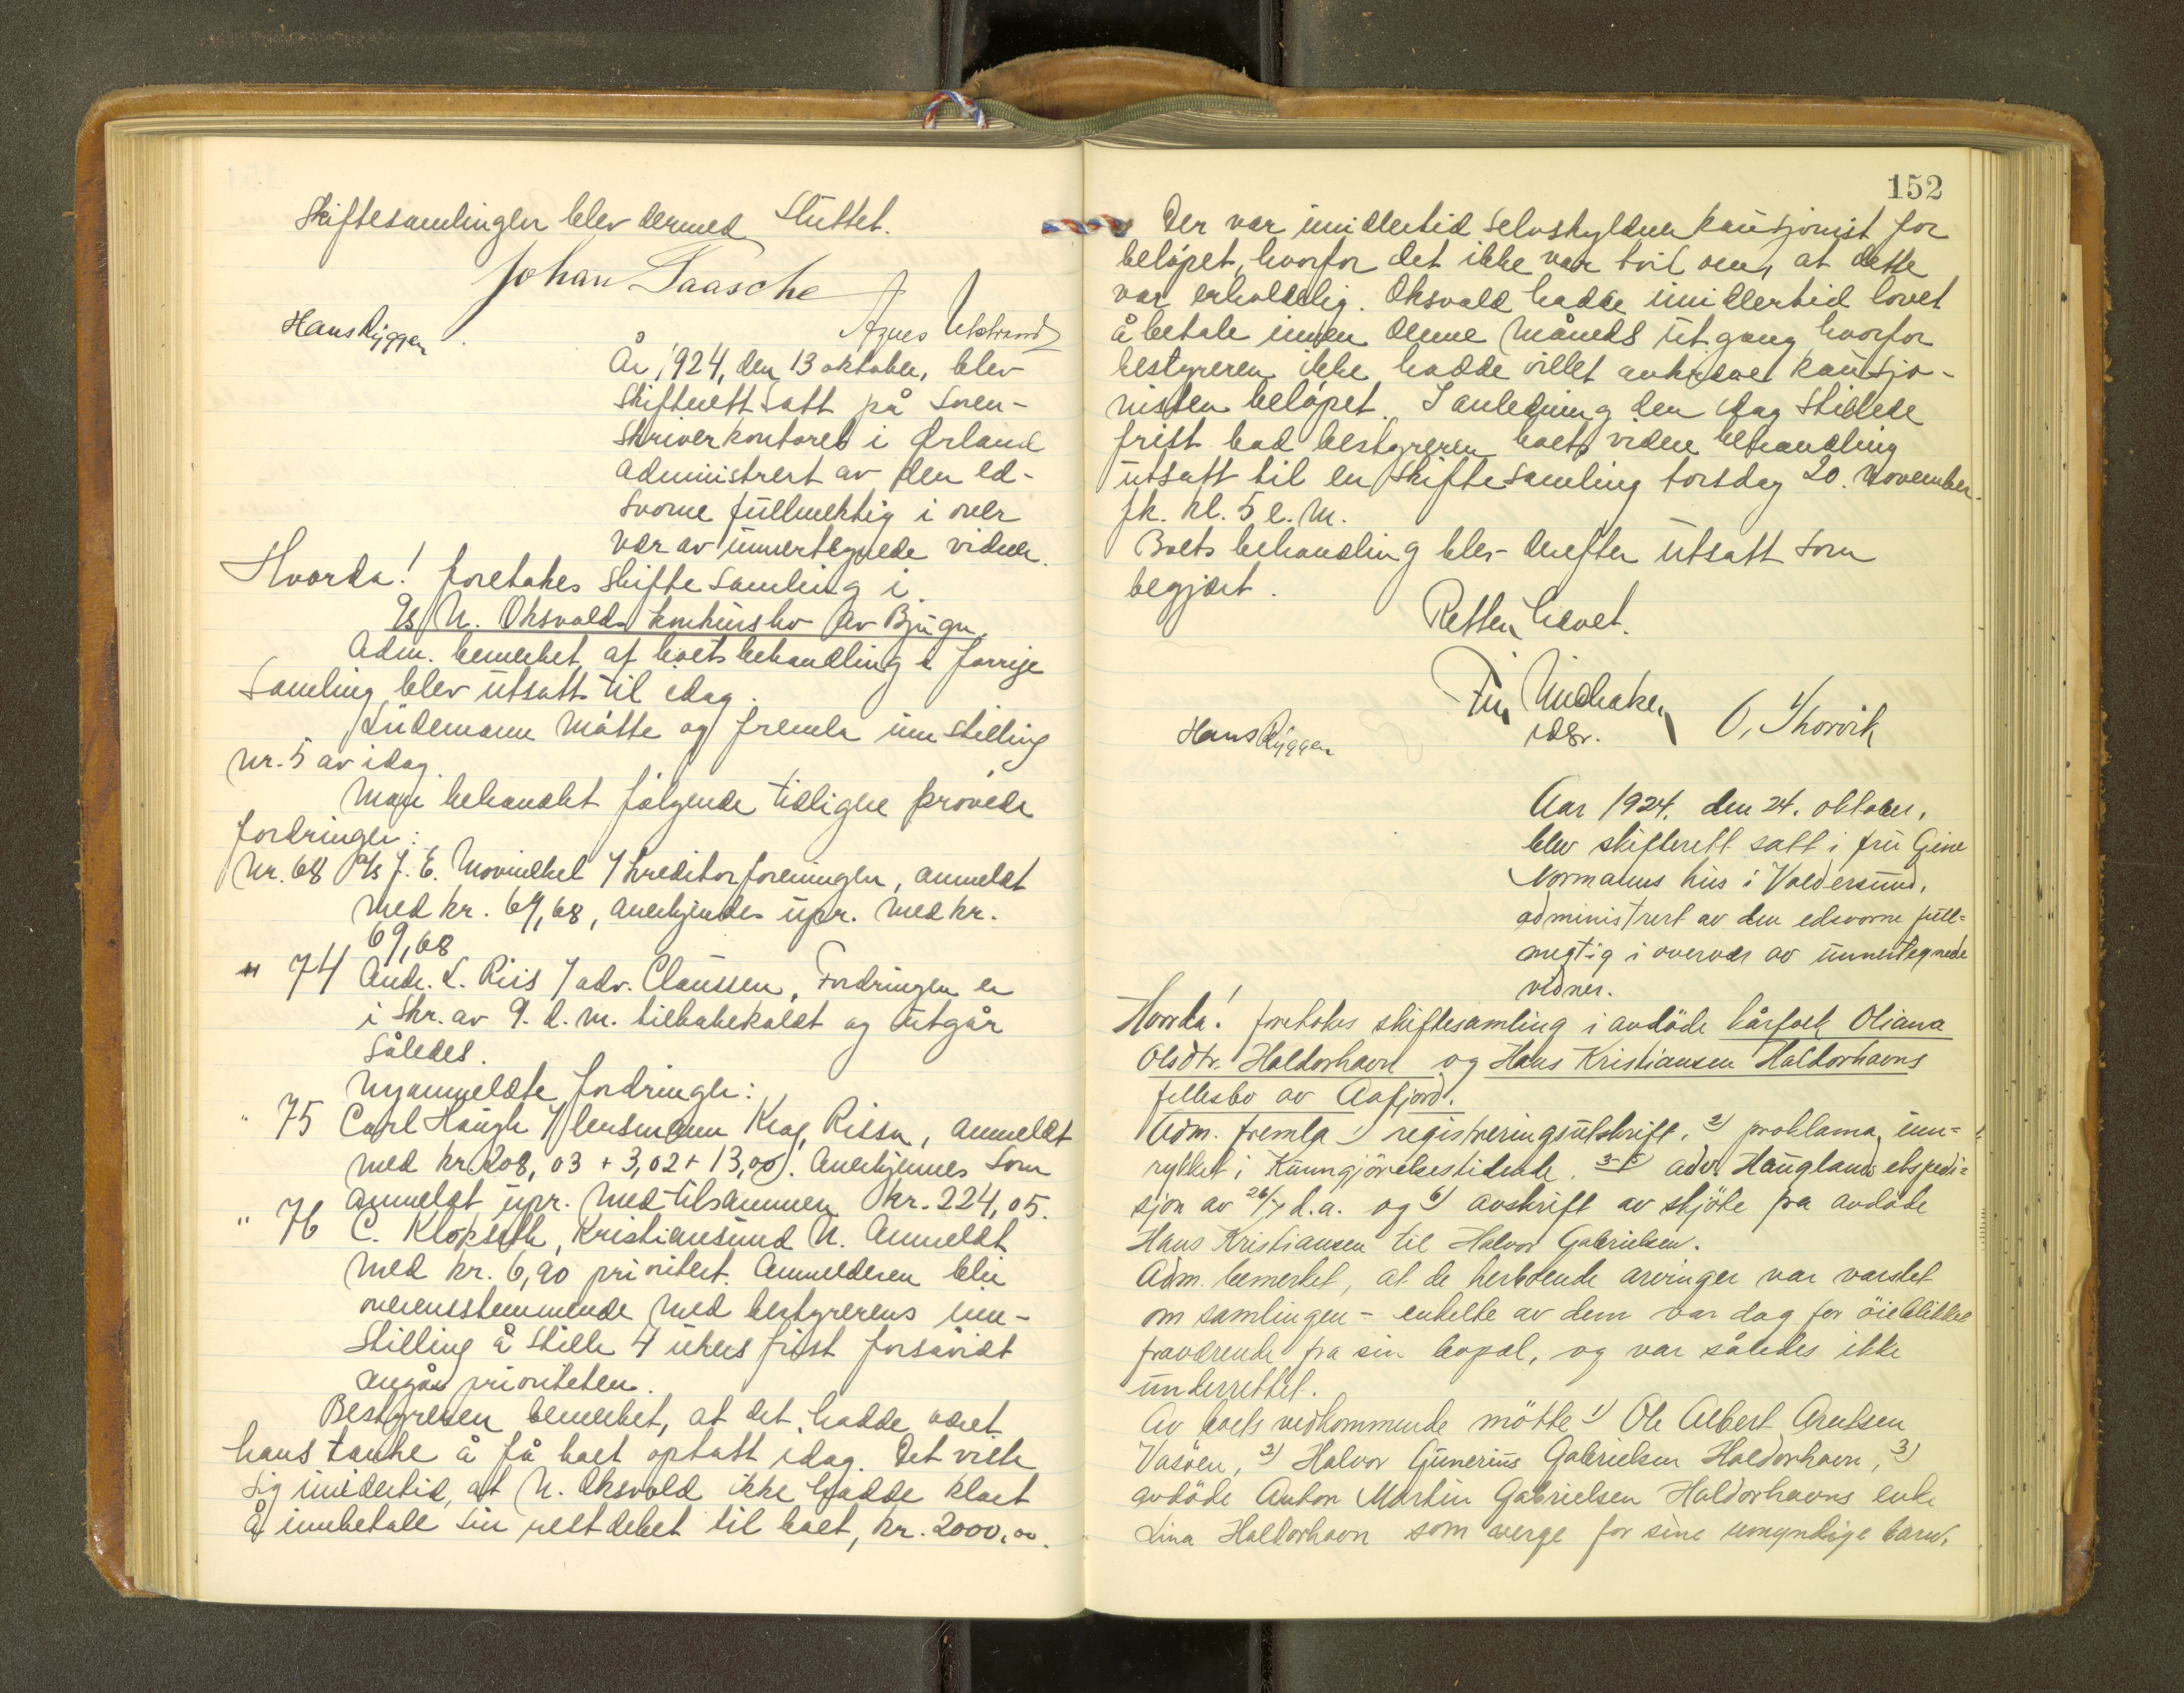 Skiftesamlingen blev dermed sluttet.
Johan Paasche
Hans Ryggen Agnes Utstrand
År 1924, den 13 oktober, blev
skifterett satt på soren-
skriverkontoret i Ørland
administrert av den ed-
svorne fullmektig i over
vær av unnertegnede vidner.
Hvorda! foretokes skiftesamling i
Es N. Oksvolds konkursbo av Bjugn.
Adm. bemerket at boets behandling i forrige
samling blev utsatt til idag.
Lüdemann møtte og fremla innstilling
nr. 5 av idag.
Man behandlet følgende tidligere prøvede
fordringer:
Nr. 68 A/s J. E. Movinckel v/ kreditorforeningen, anmeldt
med kr. 69,68, anerkjendes upr. med kr.
69,68
" 74 Andr. L. Riis v/ adv. Claussen, Fordringen er
i skr. av 9. d. m. tilbakekaldt og utgår
således.
Nyanmeldte fordringer:
" 75 Carl Haugh v/ lensmann Krag, Rissa, anmeldt
med kr. 208,03 + 3,02 + 13,00. Anerkjennes som
anmeldt upr. med tilsammen kr. 224,05.
" 76 C. Klopseth, Kristiansund N. Anmeldt
med kr. 6,90 prioritert. Anmelderen blir
overensstemmende med bestyrerens inn-
stilling å stille 4 ukers frist forsåvidt
angår prioriteten.
Bestyreren bemerket, at det hadde været
hans tanke å få boet optatt idag. Det viste
sig imidlertid, at N. Oksvold ikke hadde klart
å innbetale sin restdebet til boet, kr. 2000,00.
152
Der var imidlertid selvskyldnerkausjonist for
beløpet, hvorfor det ikke var tvil om, at dette
var erholdelig. Oksvold hadde imidlertid lovet
å betale innen denne måneds utgang hvorfor
bestyreren ikke hadde villet avkreve kausjo-
nisten beløpet. I anledning den idag stillede
frist bad bestyreren boets videre behandling
utsatt til en skiftesamling torsdag 20. november
fk. kl. 5 e. m.
Boets behandling blev derefter utsatt som
begjært.
Retten hævet.
Fin Midhaken
edsv. O. Thorvik
Hans Ryggen
Aar 1924. den 24. oktober,
blev skifterett satt i fru Gine
Normanns hus i Valdersund,
administrert av den edsvorne full=
megtig i overvær av unnertegnede
vidner.
Hvorda! foretokes skiftesamling i avdöde kårfolk Oliana
Olsdtr. Haldorhavn og Hans Kristiansen Haldorhavns
fellesbo av Aafjord.
Adm. fremla 1) registreringsutskrift, 2) proklama, inn=
rykket i Kunngjörelsestidende. 3-5) adv. Hauglands ekspedi=
sjon av 26/7 d.a. og 6) avskrift av skjöte fra avdöde
Hans Kristiansen til Halvor Gabrielsen.
Adm. bemerket, at de herboende arvinger var varslet
om samlingen – enkelte av dem var dog for öieblikket
fraværende fra sin bopæl, og var således ikke
underrettet.
Av boets vedkommende mötte 1) Ole Albert Arntsen
Vasöen, 2) Halvor Gunerius Gabrielsen Haldorhavn, 3)
avdöde Anton Martin Gabrielsen Haldorhavns enke
Lina Haldorhavn som verge for sine umyndige barn.